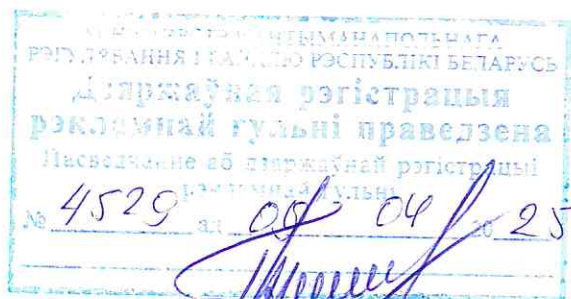 АНТЫМАНАПОЛЬНАГА
РЭГУЛЯВАННЯ І ГАНДЛЮ РЭСПУБЛІКІ БЕЛАРУСЬ
Дзяржаўная рэгістрацыя
рэкламнай гульні праведзена
Пасведчанне аб дзяржаўнай рэгістрацыі
рэкламнай гульні
№ 4529 ад 05 04 20 25